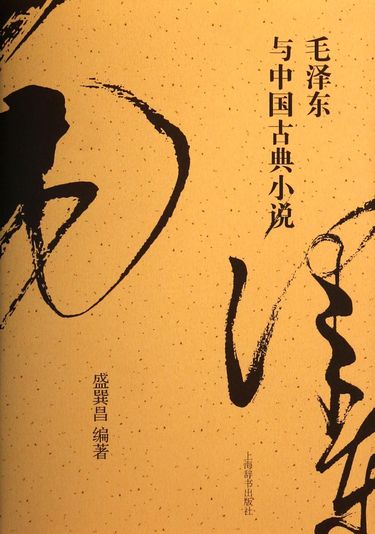 毛泽东
与中国古典小说
盛巽昌 编著
上海辞书出版社
毛泽东